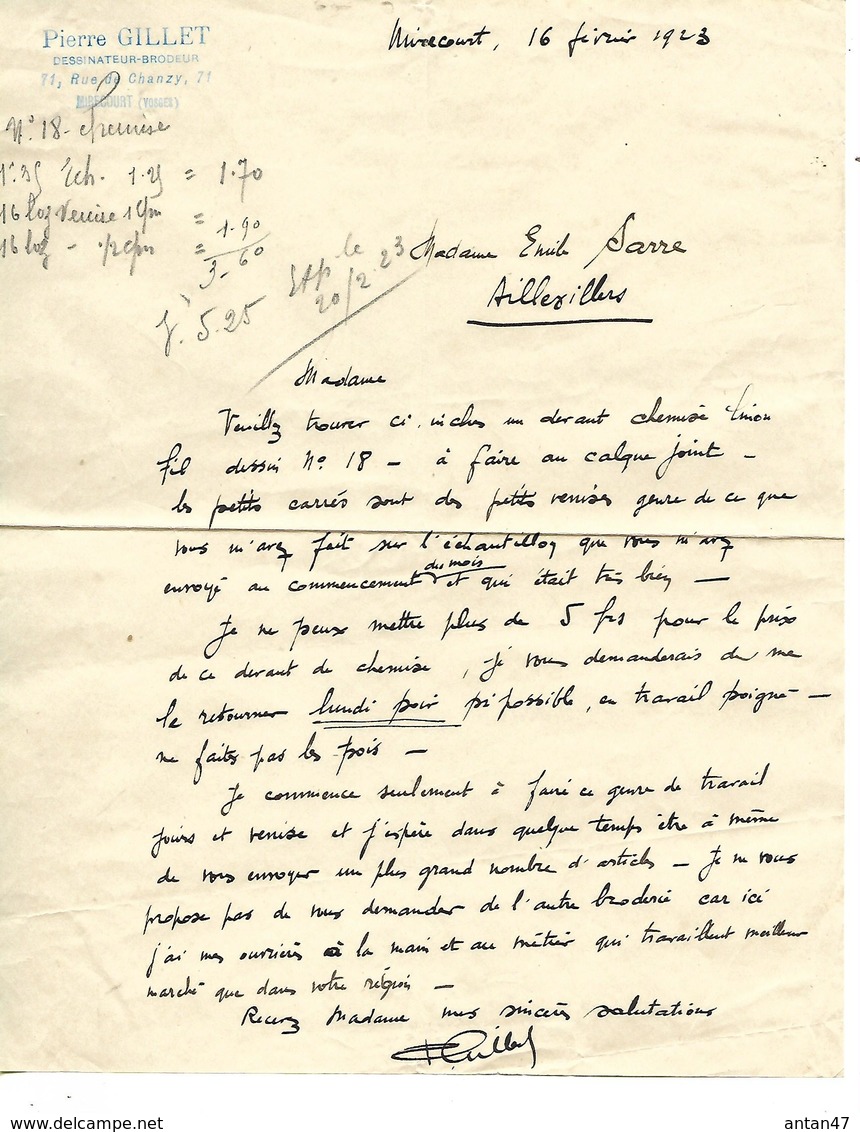 Pierre GILLET
DESSINATEUR-BRODEUR
71, Rue de Chanzy, 71
MIRECOURT (VOSGES)
Mirecourt, 16 février 1923
N° 18 - chemise
Ech. 1.25 = 1.70
16 loz Venise 1 cpm =
16 loz - = 1.90
3-60
f. 5.25
le
20/2 23
Madame Emile Sarre
Aillevillers
Madame
Veuillez trouver ci-inclus un devant chemise Union
fil dessin N° 18 - à faire au calque joint -
les petits carrés sont des petits venises genre de ce que
vous m'avez fait sur l'échantillon que vous m'avez
envoyé au commencement du mois et qui était très bien -
Je ne peux mettre plus de 5 frs pour le prix
de ce devant de chemise, je vous demanderais de me
le retourner lundi soir si possible, en travail soigné -
ne faites pas les pois -
Je commence seulement à faire ce genre de travail
jours et venise et j'espère dans quelque temps être à même
de vous envoyer un plus grand nombre d'articles - Je ne vous
propose pas de vous demander de l'autre broderie car ici
j'ai mes ouvrières à la main et au métier qui travaillent meilleur
marché que dans votre région -
Recevez Madame mes sincères salutations
PGillet
antan47